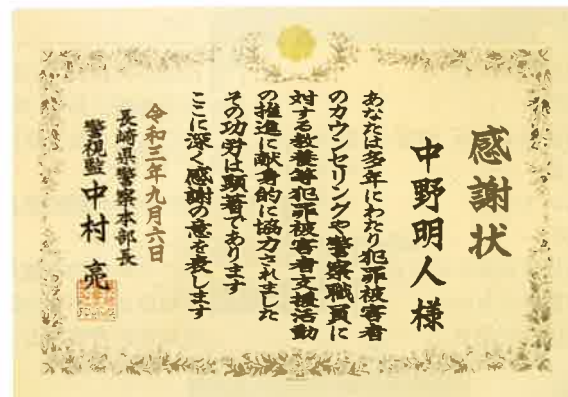 感謝状
中野明人様
あなたは多年にわたり犯罪被害者
のカウンセリングや警察職員に
対する教養等犯罪被害者支援活動
の推進に献身的に協力されました
その功労は顕著であります
ここに深く感謝の意を表します
令和三年九月六日
長崎県警察本部長
警視監 中村亮